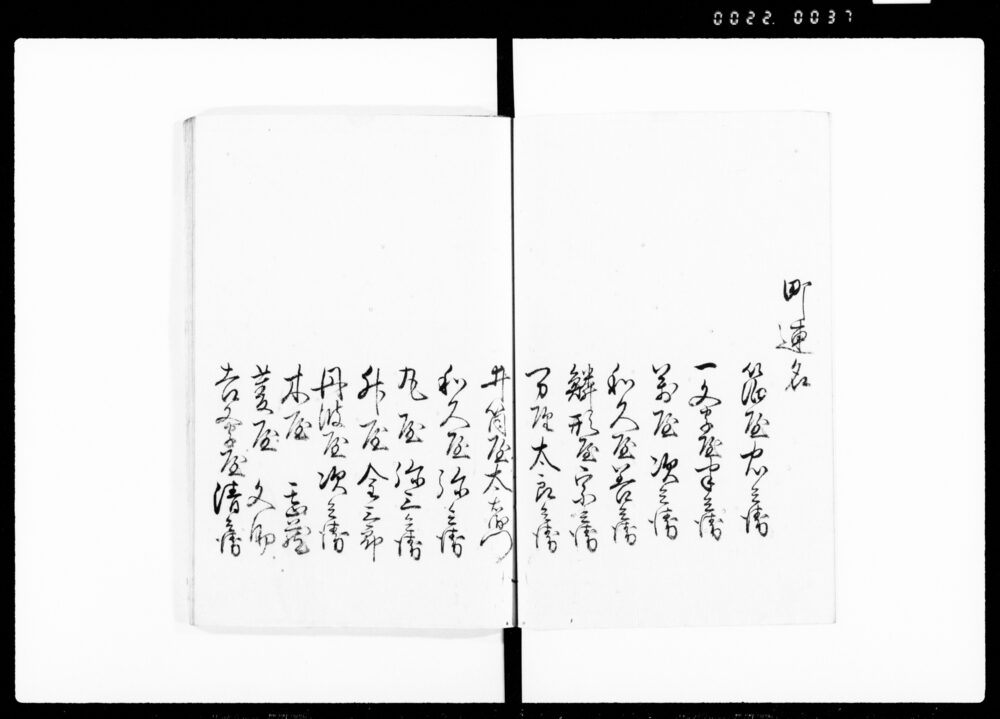 0022. 0037
町連名
屋忠兵衛
一文字屋半兵衛
萬屋次兵衛
和久屋善兵衛
鱗形屋宗兵衛
万屋太郎兵衛
井筒屋太右衛門
和久屋弥兵衛
丸屋弥三兵衛
升屋金三郎
丹波屋次兵衛
木屋嘉蔵
菱屋文助
吉文字屋清兵衛